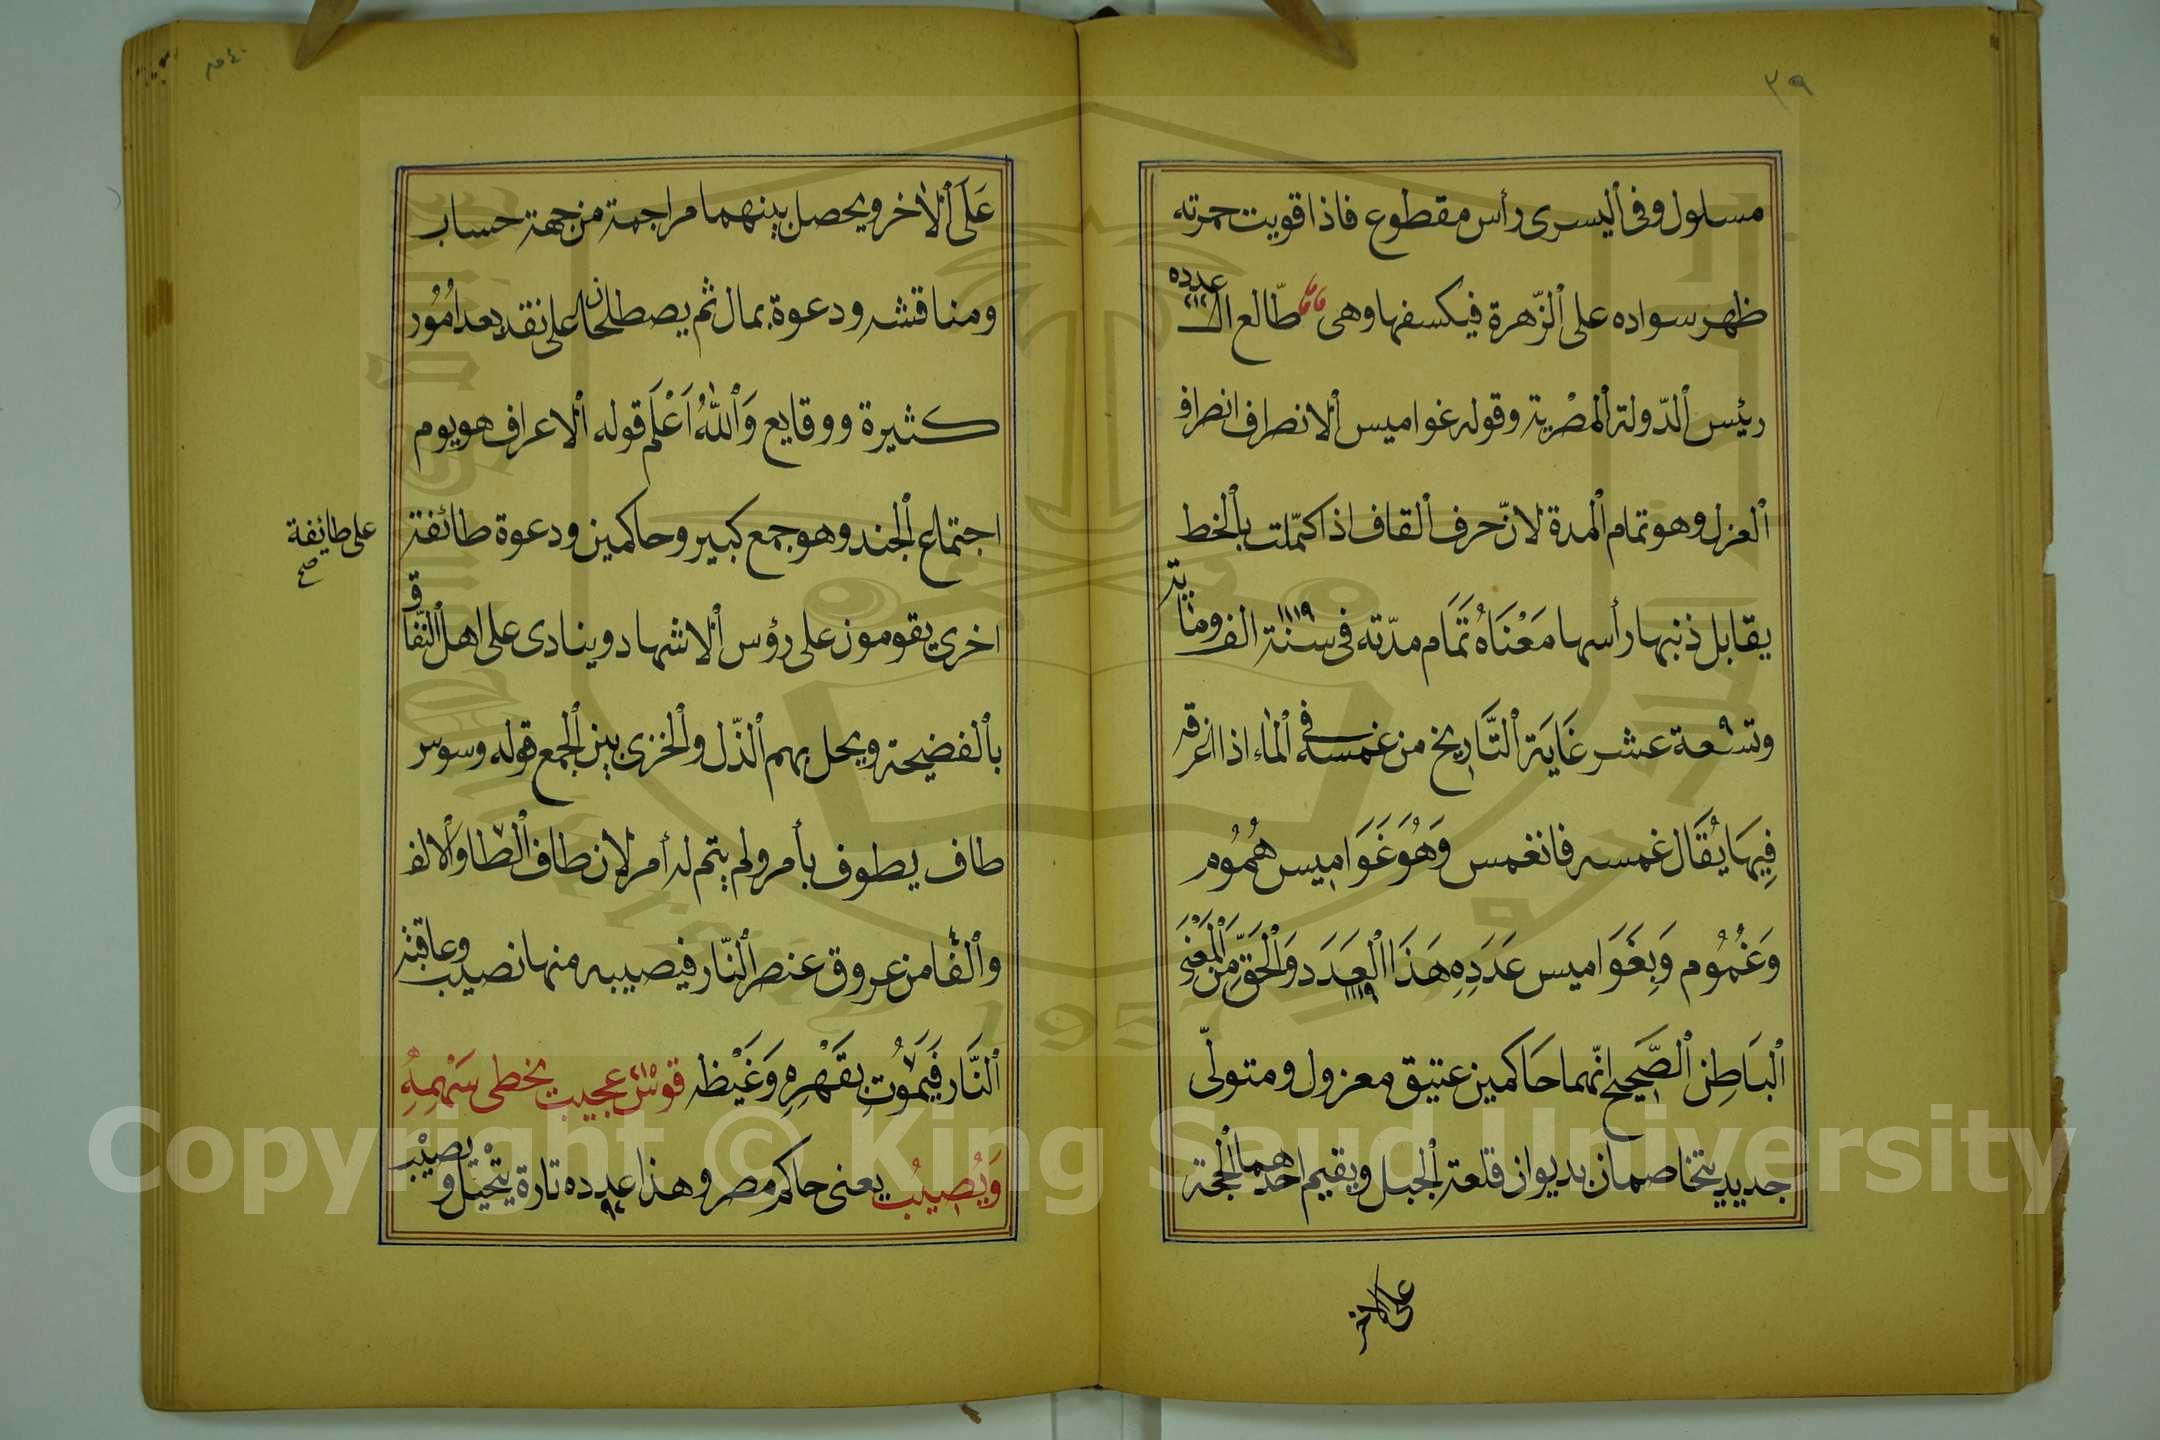 ٣٩
مسلول وفى ٱليسرى رأس مقطوع فاذا قويت حمرته
ظهر سواده على ٱلزّهرة فيكسفها وهى قاقا طّالع الـ عدده ٢١٢
رئيس ٱلدّولة ٱلمصْرية وقوله غواميس ٱلانصراف انصراف
ٱلعزل وهو تمام ٱلمدة لانّ حرف ٱلقاف اذا كمّلت بٱلخط
يقابل ذنبها رأسها مَعْنَاهُ تَمَام مدّته فى سنة ١١١٩ الف ومائة
وتسْعة عشر غَايَة ٱلتَّاريخ من غمسه فى ٱلمٰاء اذا اغرقه
فِيهَا يُقَال غمسه فانغمس وَهُوَ غَوَاميس هُمُوُم
وَغُمُوُم وَبِغَوَاميس عَدَدِهِ هَذَا ٱلعَدَد ١١١٩ وَٱلحَقّ مِنَ ٱلمَعْنَى
ٱلبَاطِن ٱلصَّحِيح انّهما حَاكمين عتيق معزول ومتولّى
جديد يتخاصمان بديوان قلعة ٱلجبل ويقيم احدهما ٱلحجة
على الاخر
عَلَى ٱلاٰخر ويحصل بينهما مراجمة من جهة حساب
ومناقشه ودعوة بمال ثم يصطلحان على نقد بعد امُوُر
كثيرة ووقايع وَٱللهُ اَعْلَم قوله ٱلاعراف هو يوم
اجتماع ٱلجند وهو جمع كبير وحاكمين ودعوة طائفة
على طائفة
صح
اخرى يقومون على رؤس ٱلاشهاد وينادى على اهل ٱلنّفاق
بٱلفضيحة ويحل بهم ٱلذّل وٱلخزى بين ٱلجمع قوله وسوس
طاف يطوف بأمر ولم يتم له أمر لان طاف ٱلطا وٱلالف
وٱلفا من عروق عنصر ٱلنّار فيصيبه منها نصيب وعاقبته
ٱلنَّار فَيَمُوُت بقَهْرِهِ وَغَيْظه قوس ٢١٥ عجيب يخطى سَهْمِهُ
وَيُصيبُ يعنى حاكم مصر وهذا عدده ٩٢ تارة يتْحيّل ويصيْب